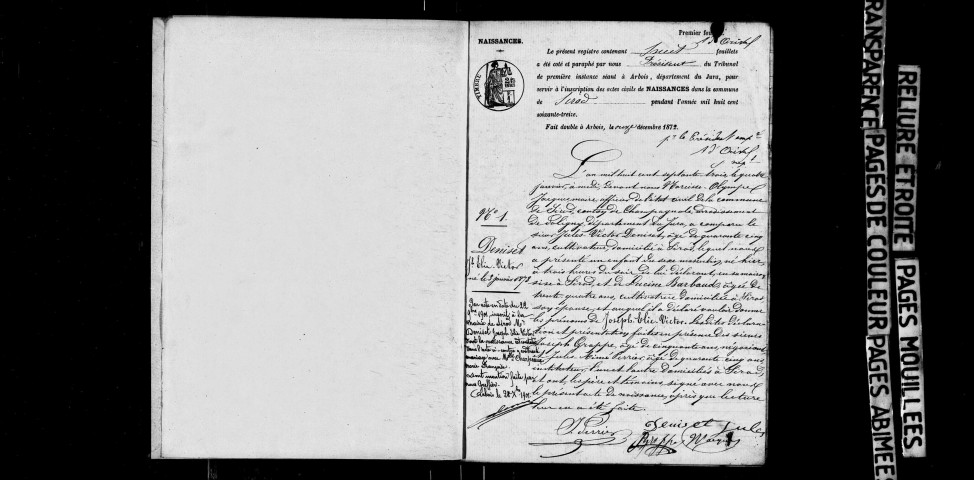 Premier feuillet
NAISSANCES.
Le présent registre contenant feuillets
a été coté et paraphé par nous Président du Tribunal
de première instance séant à Arbois, département du Jura, pour
servir à l'inscription des actes civils de NAISSANCES dans la commune
de Sirod pendant l'année mil huit cent
soixante-treize.
Fait double à Arbois, le décembre 1872.
pr le Président
TIMBRE
L'an mil huit cent septante trois le quatre
janvier, à midi, devant nous Narcisse Olympe
Jacquemaire, officier de l'état civil de la commune
de Sirod, canton de Champagnole, arrondissement
de Poligny, département du Jura, a comparu le
sieur Jules Victor Deniset, âgé de quarante cinq
ans, cultivateur, domicilié à Sirod, lequel nous
a présenté un enfant du sexe masculin, né hier,
à trois heures du soir, de lui déclarant, en sa maison
sise à Sirod, et de Lucine Barbaud, âgée de
trente quatre ans, cultivatrice domiciliée à Sirod
son épouse, et auquel il a déclaré vouloir donner
les prénoms de Joseph Elie Victor. Lesdites déclara-
tion et présentation faites en présence des sieurs
Joseph Grappe, âgé de cinquante ans, négociant
et Jules Aimé Perrier, âgé de quarante cinq ans
instituteur, l'un et l'autre domiciliés à Sirod,
et ont, les père et témoins signé avec nous
le présent acte de naissance, après que lecture
leur en a été faite.
J. Perrier Deniset Jules
Grappe
No 1.
Deniset
Jh Elie Victor
né le 3 janvier 1873
Par acte en date du 22
1901, inscrit à la
mairie de Sirod Mr
Deniset Joseph Elie Victor
dont la naissance est
mariage avec Melle
Marie Françoise
mention faite par
nous Greffier
Arbois le 28 Xbre 1901
RANSPARENCE PAGES DE COULEUR PAGES ABIMEE
RELIURE ETROITE PAGES MOUILLEES